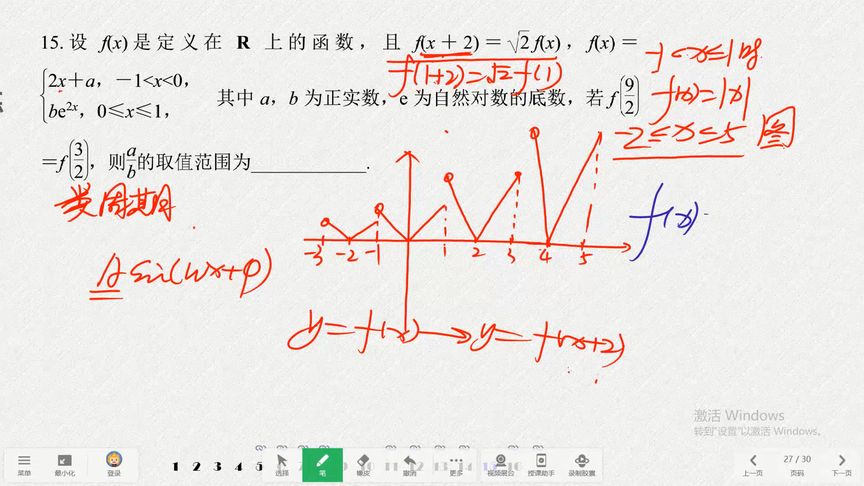 15. 设 f(x) 是 定 义 在 R 上 的 函 数 ， 且 f(x + 2) = √2 f(x) ， f(x) =
{2x＋a，－1<x<0，
be^{2x}，0≤x≤1，
其中 a，b 为正实数，e 为自然对数的底数，若 f(9/2)
=f(3/2)，则a/b的取值范围为____________.
f(1+2)=√2 f(1)
-1<x≤1时
f(x)=|x|
-2≤x≤5 图
类周期
A sin(ωx+φ)
-3 -2 -1 1 2 3 4 5
f(x)
y=f(x)→y=f(x+2)
激活 Windows
转到"设置"以激活 Windows。
菜单 最小化 登录
1 2 3 4 5
选择 笔 橡皮 撤销 更多 视频展台 授课助手 录制胶囊
上一页 27 / 30 页码 下一页